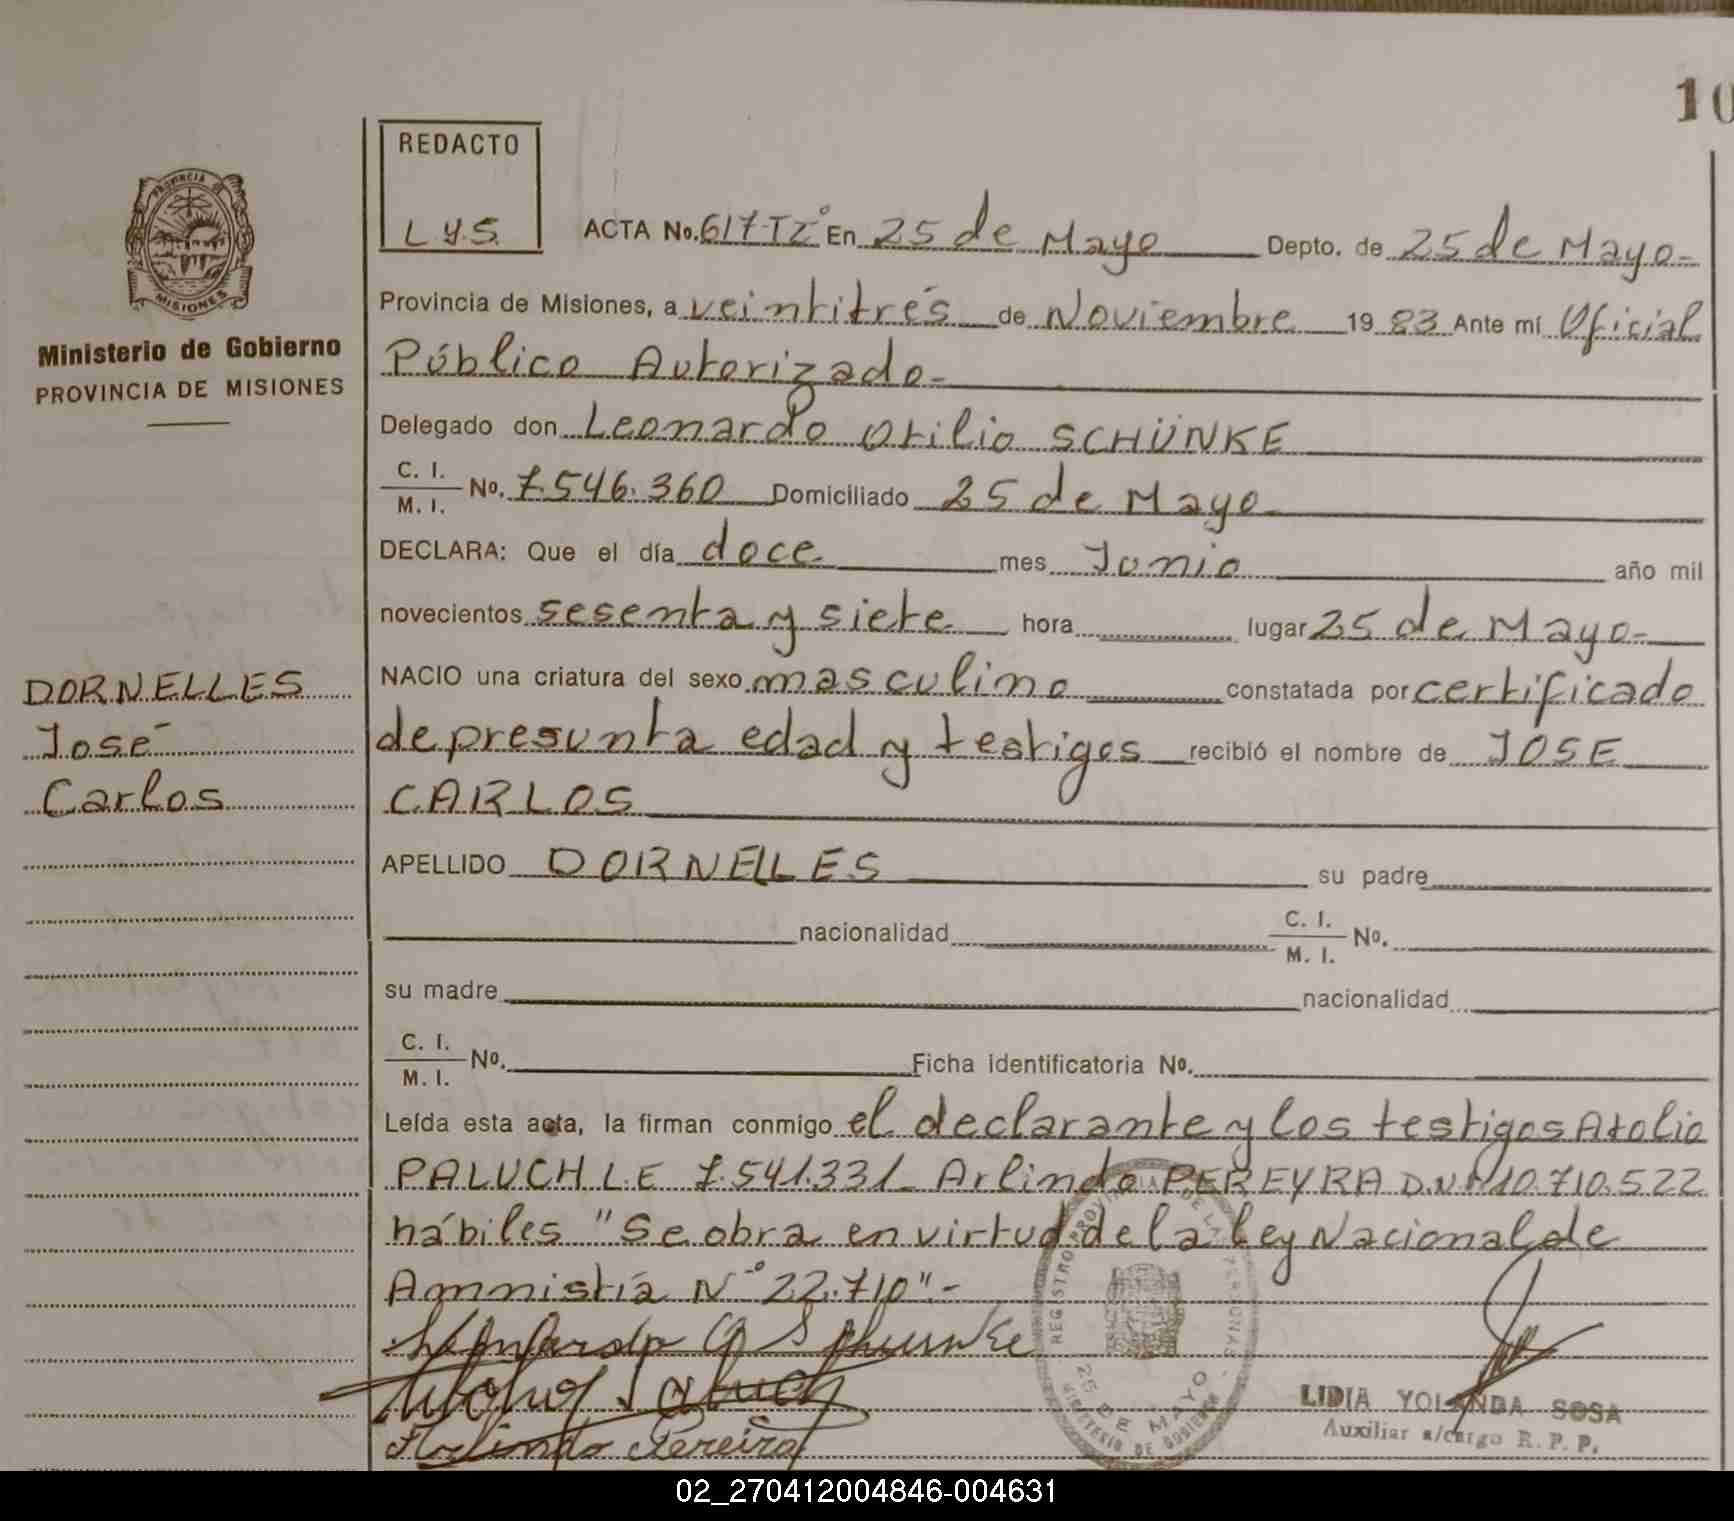 10
REDACTO
L.Y.S.
PROVINCIA DE
MISIONES
Ministerio de Gobierno
PROVINCIA DE MISIONES
ACTA No. 617-Tz° En 25 de Mayo Depto. de 25 de Mayo-
Provincia de Misiones, a veintitrés de Noviembre 1983 Ante mí Oficial
Público Autorizado-
Delegado don Leonardo Otilio SCHÜNKE
C. I.
M. I. No. 7.546.360 Domiciliado 25 de Mayo
DECLARA: Que el día doce mes Junio año mil
novecientos sesenta y siete hora lugar 25 de Mayo-
NACIO una criatura del sexo masculino constatada por certificado
de presunta edad y testigos recibió el nombre de JOSE
CARLOS
DORNELLES
José
Carlos
APELLIDO DORNELLES su padre
nacionalidad C. I.
M. I. No.
su madre nacionalidad
C. I.
M. I. No. Ficha identificatoria No.
Leída esta acta, la firman conmigo el declarante y los testigos Atolio
PALUCH L.E 7.541.331- Arlindo PEREYRA D.N.I 10.710.522
hábiles "Se obra en virtud de la ley Nacional de
Amnistía N° 22.710".-
Arlindo Pereira
REGISTRO PROVINCIAL DE LAS PERSONAS
25 DE MAYO
MINISTERIO DE GOBIERNO
LIDIA YOLANDA SOSA
Auxiliar a/cargo R. P. P.
02_270412004846-004631